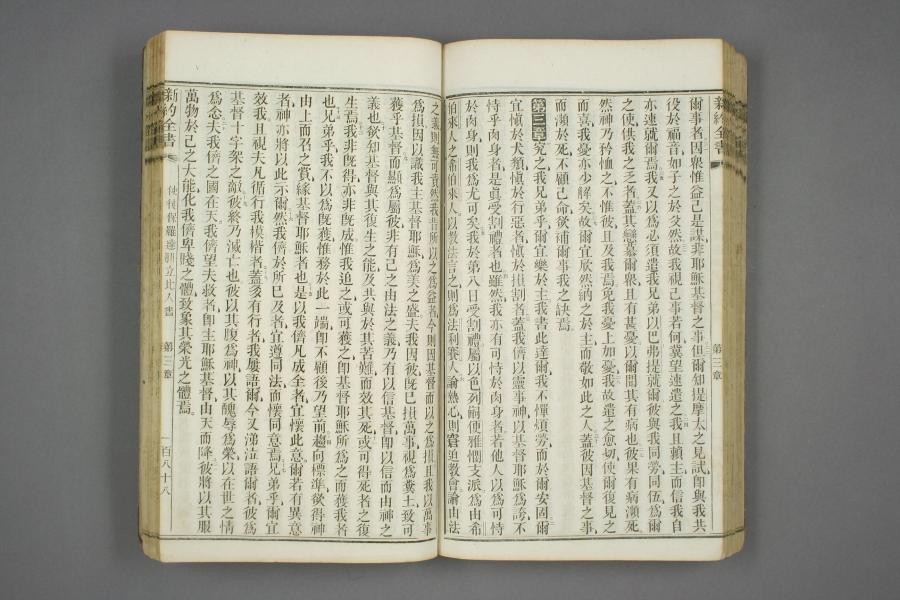 新約全書
第三章
爾事者因眾惟益己是謀非耶穌基督之事但爾知提摩太之見試卽與我共
役於福音如子之於父然故我視己事若何冀望速遣之我且賴主而信我自
亦速就爾焉我又以爲必須遣我兄弟以巴弗提就爾彼與我同勞同伍爲爾
之使供我之乏者蓋其戀慕爾眾且有甚憂以爾聞其有病也彼果有病瀕死
然神乃矜恤之不惟彼且及我焉免我憂上加憂我故遣之愈切使爾復見之
而喜我憂亦少解矣故爾宜欣然納之於主而敬如此之人蓋彼因基督之事
而瀕於死不顧己命欲補爾事我之缺焉
第三章究之我兄弟乎爾宜樂於主我書此達爾我不憚煩勞而於爾安固爾
宜愼於犬類愼於行惡者愼於損割者蓋我儕以靈事神以基督耶穌爲誇不
恃乎肉身者是眞受割禮者也雖然我亦有可恃於肉身者若他人以爲可恃
於肉身則我爲尤可矣我於第八日受割禮屬以色列嗣便雅憫支派爲由希
伯來人之希伯來人以教法言之則爲法利賽人論熱心則窘迫教會論由法
之義則無可責然我昔所以之爲益者今則因基督而以之爲損且我以萬事
爲損因以識我主基督耶穌爲美之盛夫我因彼旣已損萬事視爲糞土致可
獲乎基督而顯爲屬彼非有己之由法之義乃有以信基督卽以信而由神之
義也欲知基督與其復生之能及共與於其苦難而效其死或可得死者之復
生焉我非旣得亦非旣成惟我追之或可獲之卽基督耶穌所爲之而獲我者
也兄弟乎我不以爲旣獲惟務於此一端卽不顧後乃望前趨向標準欲得神
由上而召之賞緣基督耶穌者也是以我儕凡成全者宜懷此意爾若有異意
者神亦將以此示爾然我儕於所已及者宜遵同法而懷同意焉兄弟乎爾宜
效我且視夫凡循行我模楷者蓋多有行者我屢語爾今又涕泣語爾者彼爲
基督十字架之敵彼終乃滅亡也彼以其腹爲神以其醜辱爲榮以在世之情
爲念夫我儕之國在天我儕望夫救者卽主耶穌基督由天而降彼將以其服
萬物於己之大能化我儕卑賤之體致象其榮光之體焉
新約全書
使徒保羅達腓立比人書
第三章
一百八十八